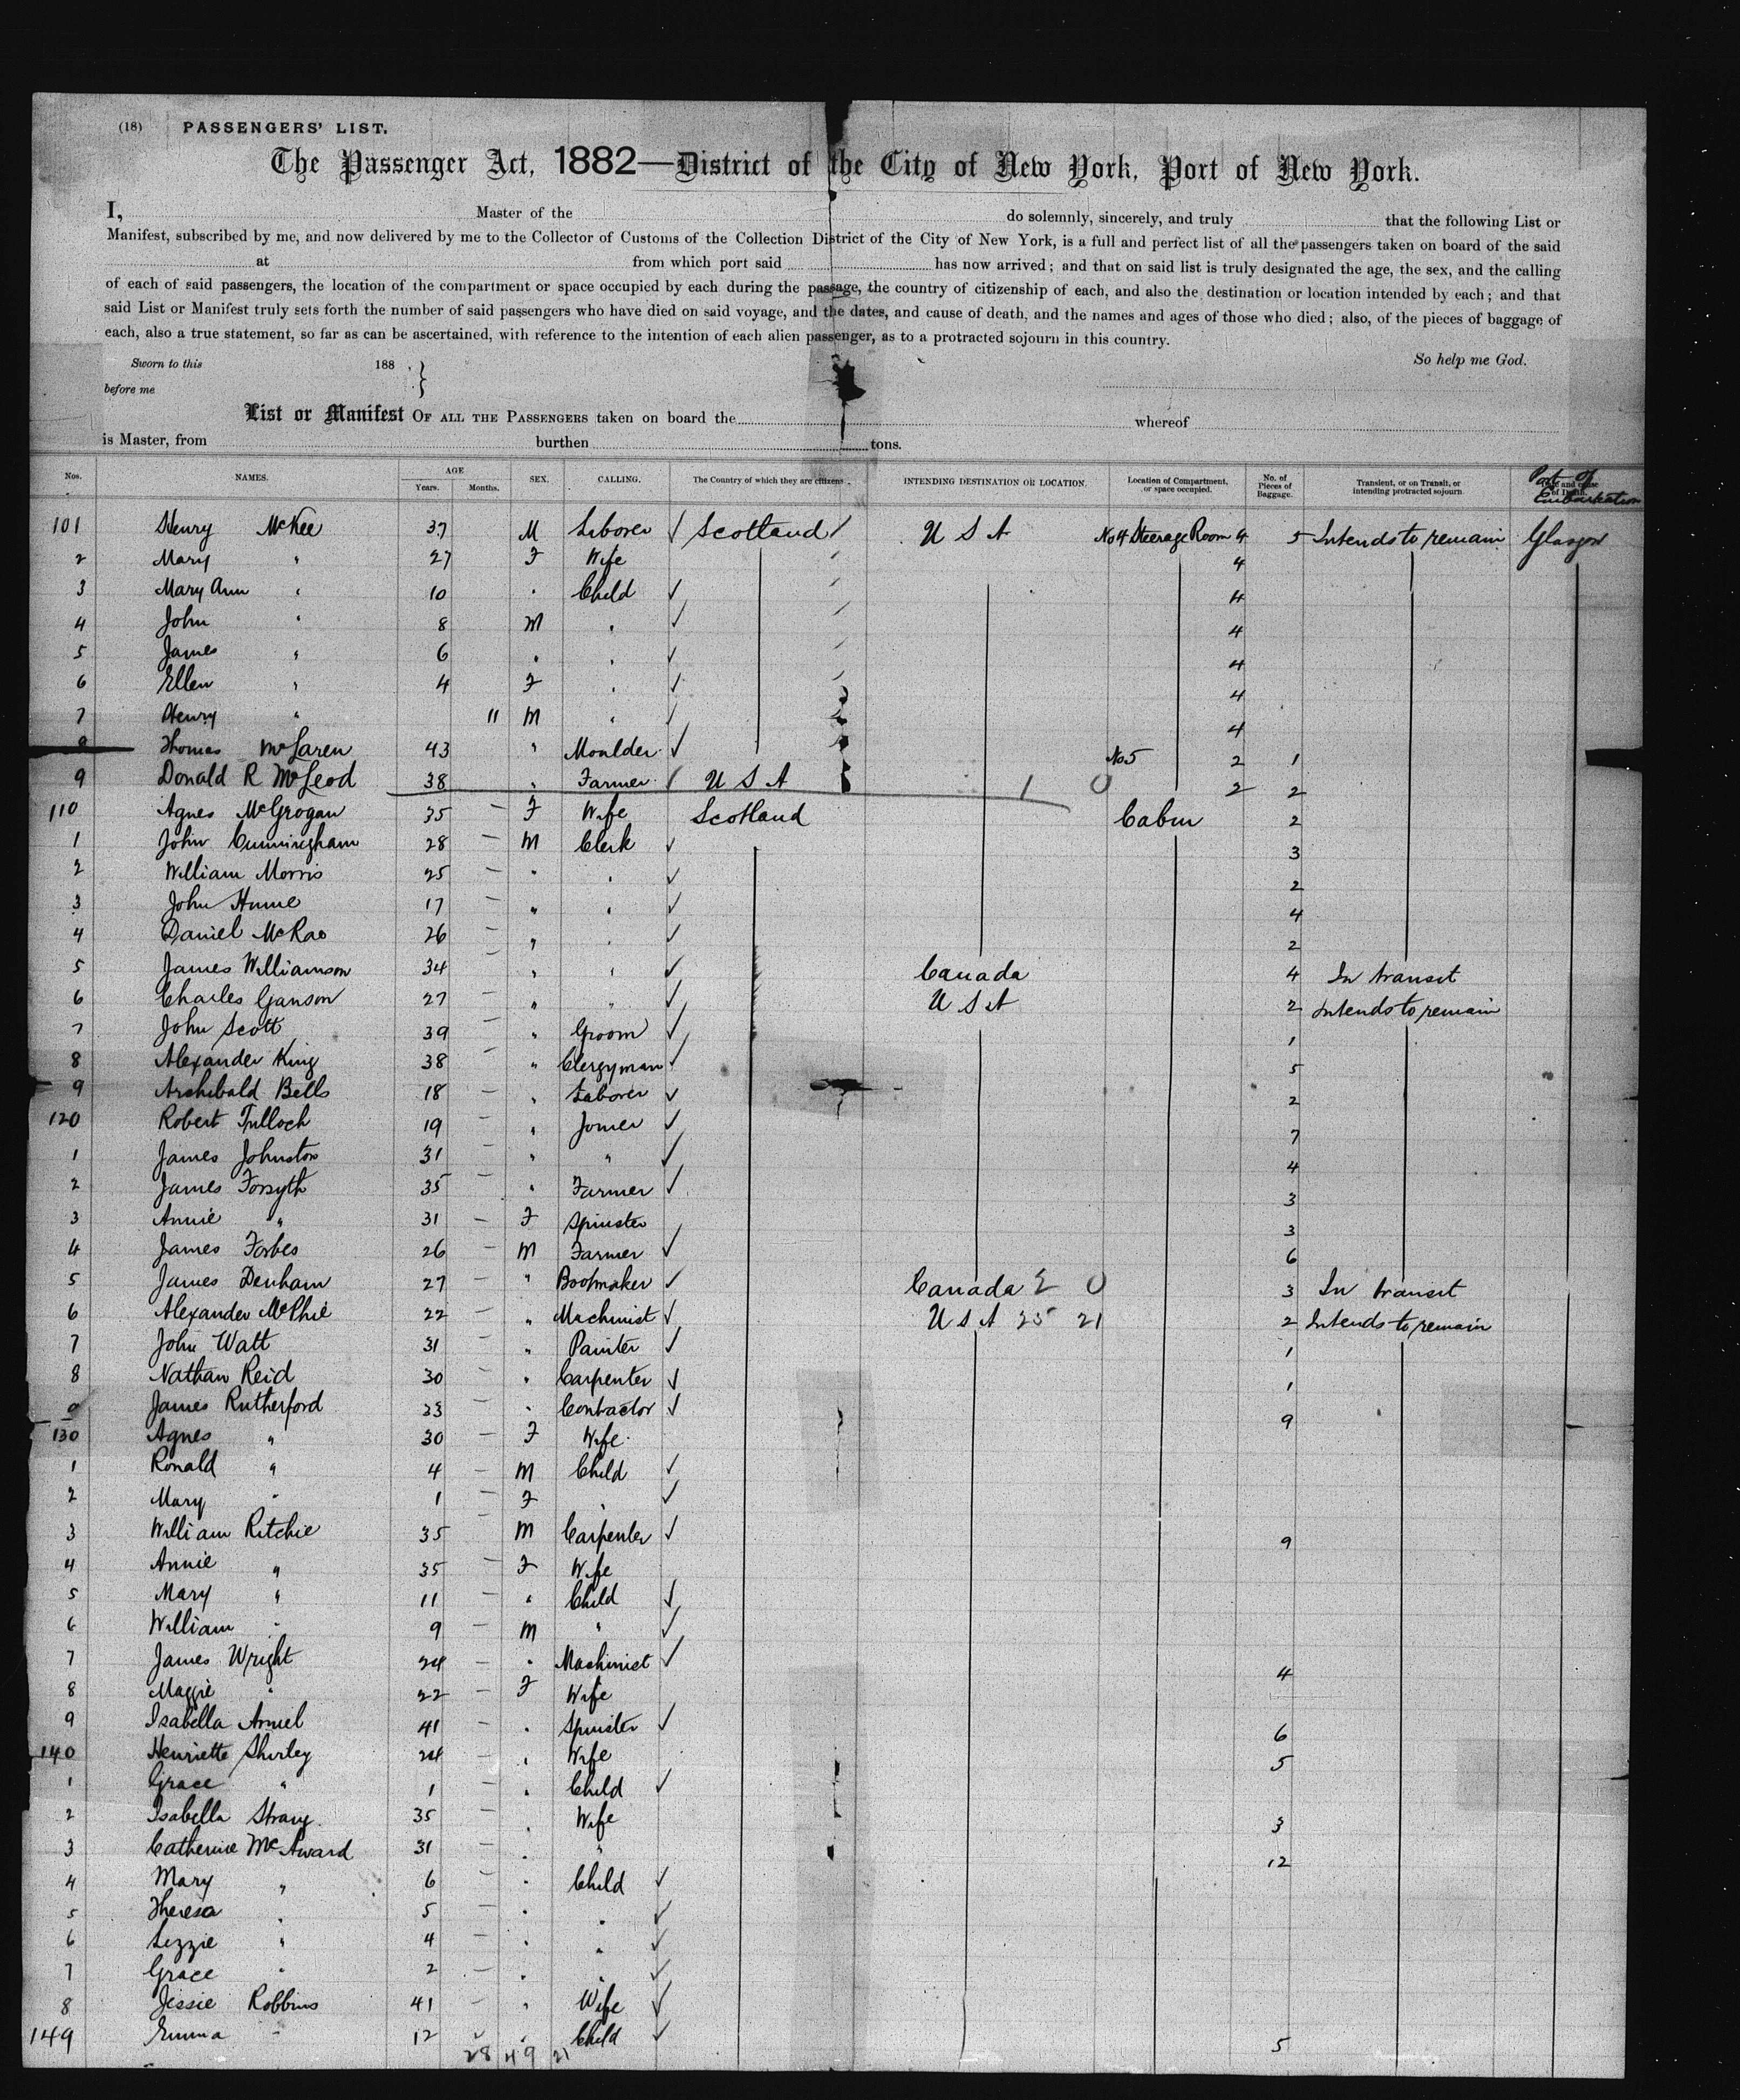 (18) PASSENGERS' LIST.
The Passenger Act, 1882—District of the City of New York, Port of New York.
I, Master of the do solemnly, sincerely, and truly that the following List or
Manifest, subscribed by me, and now delivered by me to the Collector of Customs of the Collection District of the City of New York, is a full and perfect list of all the passengers taken on board of the said
at from which port said has now arrived; and that on said list is truly designated the age, the sex, and the calling
of each of said passengers, the location of the compartment or space occupied by each during the passage, the country of citizenship of each, and also the destination or location intended by each; and that
said List or Manifest truly sets forth the number of said passengers who have died on said voyage, and the dates, and cause of death, and the names and ages of those who died; also, of the pieces of baggage of
each, also a true statement, so far as can be ascertained, with reference to the intention of each alien passenger, as to a protracted sojourn in this country.
Sworn to this 188 , So help me God.
before me
List or Manifest OF ALL THE PASSENGERS taken on board the whereof
is Master, from burthen tons.
Nos. NAMES. AGE Years. Months. SEX. CALLING. The Country of which they are citizens. INTENDING DESTINATION OR LOCATION. Location of Compartment, or space occupied. No. of Pieces of Baggage. Transient, or on Transit, or intending protracted sojourn Port of Embarkation
101 Henry McKee 37 M Laborer ✓ Scotland U S A No 4 Steerage Room 4 5 Intends to remain Glasgow
2 Mary " 27 F Wife 4
3 Mary Ann " 10 " Child ✓ 4
4 John " 8 M " ✓ 4
5 James " 6 " " ✓ 4
6 Ellen " 4 F " ✓ 4
7 Henry " 11 M " ✓ 4
8 Thomas McLaren 43 " Moulder ✓ No 5 2 1
9 Donald R McLeod 38 " Farmer ✓ U S A 1 0 2 2
110 Agnes McGrogan 35 – F Wife Scotland Cabin 2
1 John Cunningham 28 – M Clerk ✓ 3
2 William Morris 25 – " " ✓ 2
3 John Hume 17 – " " ✓ 4
4 Daniel McRae 26 – " " ✓ 2
5 James Williamson 34 – " " ✓ Canada 4 In transit
6 Charles Ganson 27 – " " ✓ U S A 2 Intends to remain
7 John Scott 39 – " Groom ✓ 1
8 Alexander King 38 – " Clergyman ✓ 5
9 Archibald Bells 18 – " Laborer ✓ 2
120 Robert Tulloch 19 – " Joiner ✓ 7
1 James Johnston 31 – " " ✓ 4
2 James Forsyth 35 – " Farmer ✓ 3
3 Annie " 31 – F Spinster 3
4 James Forbes 26 – M Farmer ✓ 6
5 James Denham 27 – " ✓ Canada 2 0 3 In transit
6 Alexander McPhie 22 – " Machinist ✓ U S A 25 21 2 Intends to remain
7 John Watt 31 – " Painter ✓ 1
8 Nathan Reid 30 – " Carpenter ✓ 1
9 James Rutherford 33 – " Contractor ✓ 9
130 Agnes " 30 – F Wife
1 Ronald " 4 – M Child ✓
2 Mary " 1 – F " ✓
3 William Ritchie 35 – M Carpenter ✓ 9
4 Annie " 35 – F Wife
5 Mary " 11 – " Child ✓
6 William " 9 – M " ✓
7 James Wright 24 – " Machinist ✓ 4
8 Maggie " 22 – F Wife
9 Isabella 41 – " Spinster ✓ 6
140 Henriette Shirley 24 – " Wife 5
1 Grace " 1 – " Child ✓
2 Isabella 35 – " Wife 3
3 Catherine McAward 31 – " " 12
4 Mary " 6 – " Child ✓
5 Theresa " 5 – " " ✓
6 Lizzie " 4 – " " ✓
7 Grace " 2 – " " ✓
8 Jessie Robbins 41 – " Wife ✓
149 Emma " 12 " Child ✓ 5
28 49 21